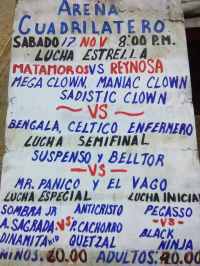 ARENA
CUADRILATERO
SABADO 17 NOV 8:00 P.M.
LUCHA ESTRELLA
MATAMOROS VS REYNOSA
MEGA CLOWN, MANIAC CLOWN
SADISTIC CLOWN
-VS-
BENGALA, CELTICO ENFERMERO
LUCHA SEMIFINAL
SUSPENSO Y BELLTOR
-VS-
MR. PANICO Y EL VAGO
LUCHA ESPECIAL LUCHA INICIAL
SOMBRA JR ANTICRISTO PEGASSO
A. SAGRADA VS P. CACHORRO -VS-
DINAMITA QUETZAL BLACK
NINJA
NIÑOS: 20.00 ADULTOS: 40.00